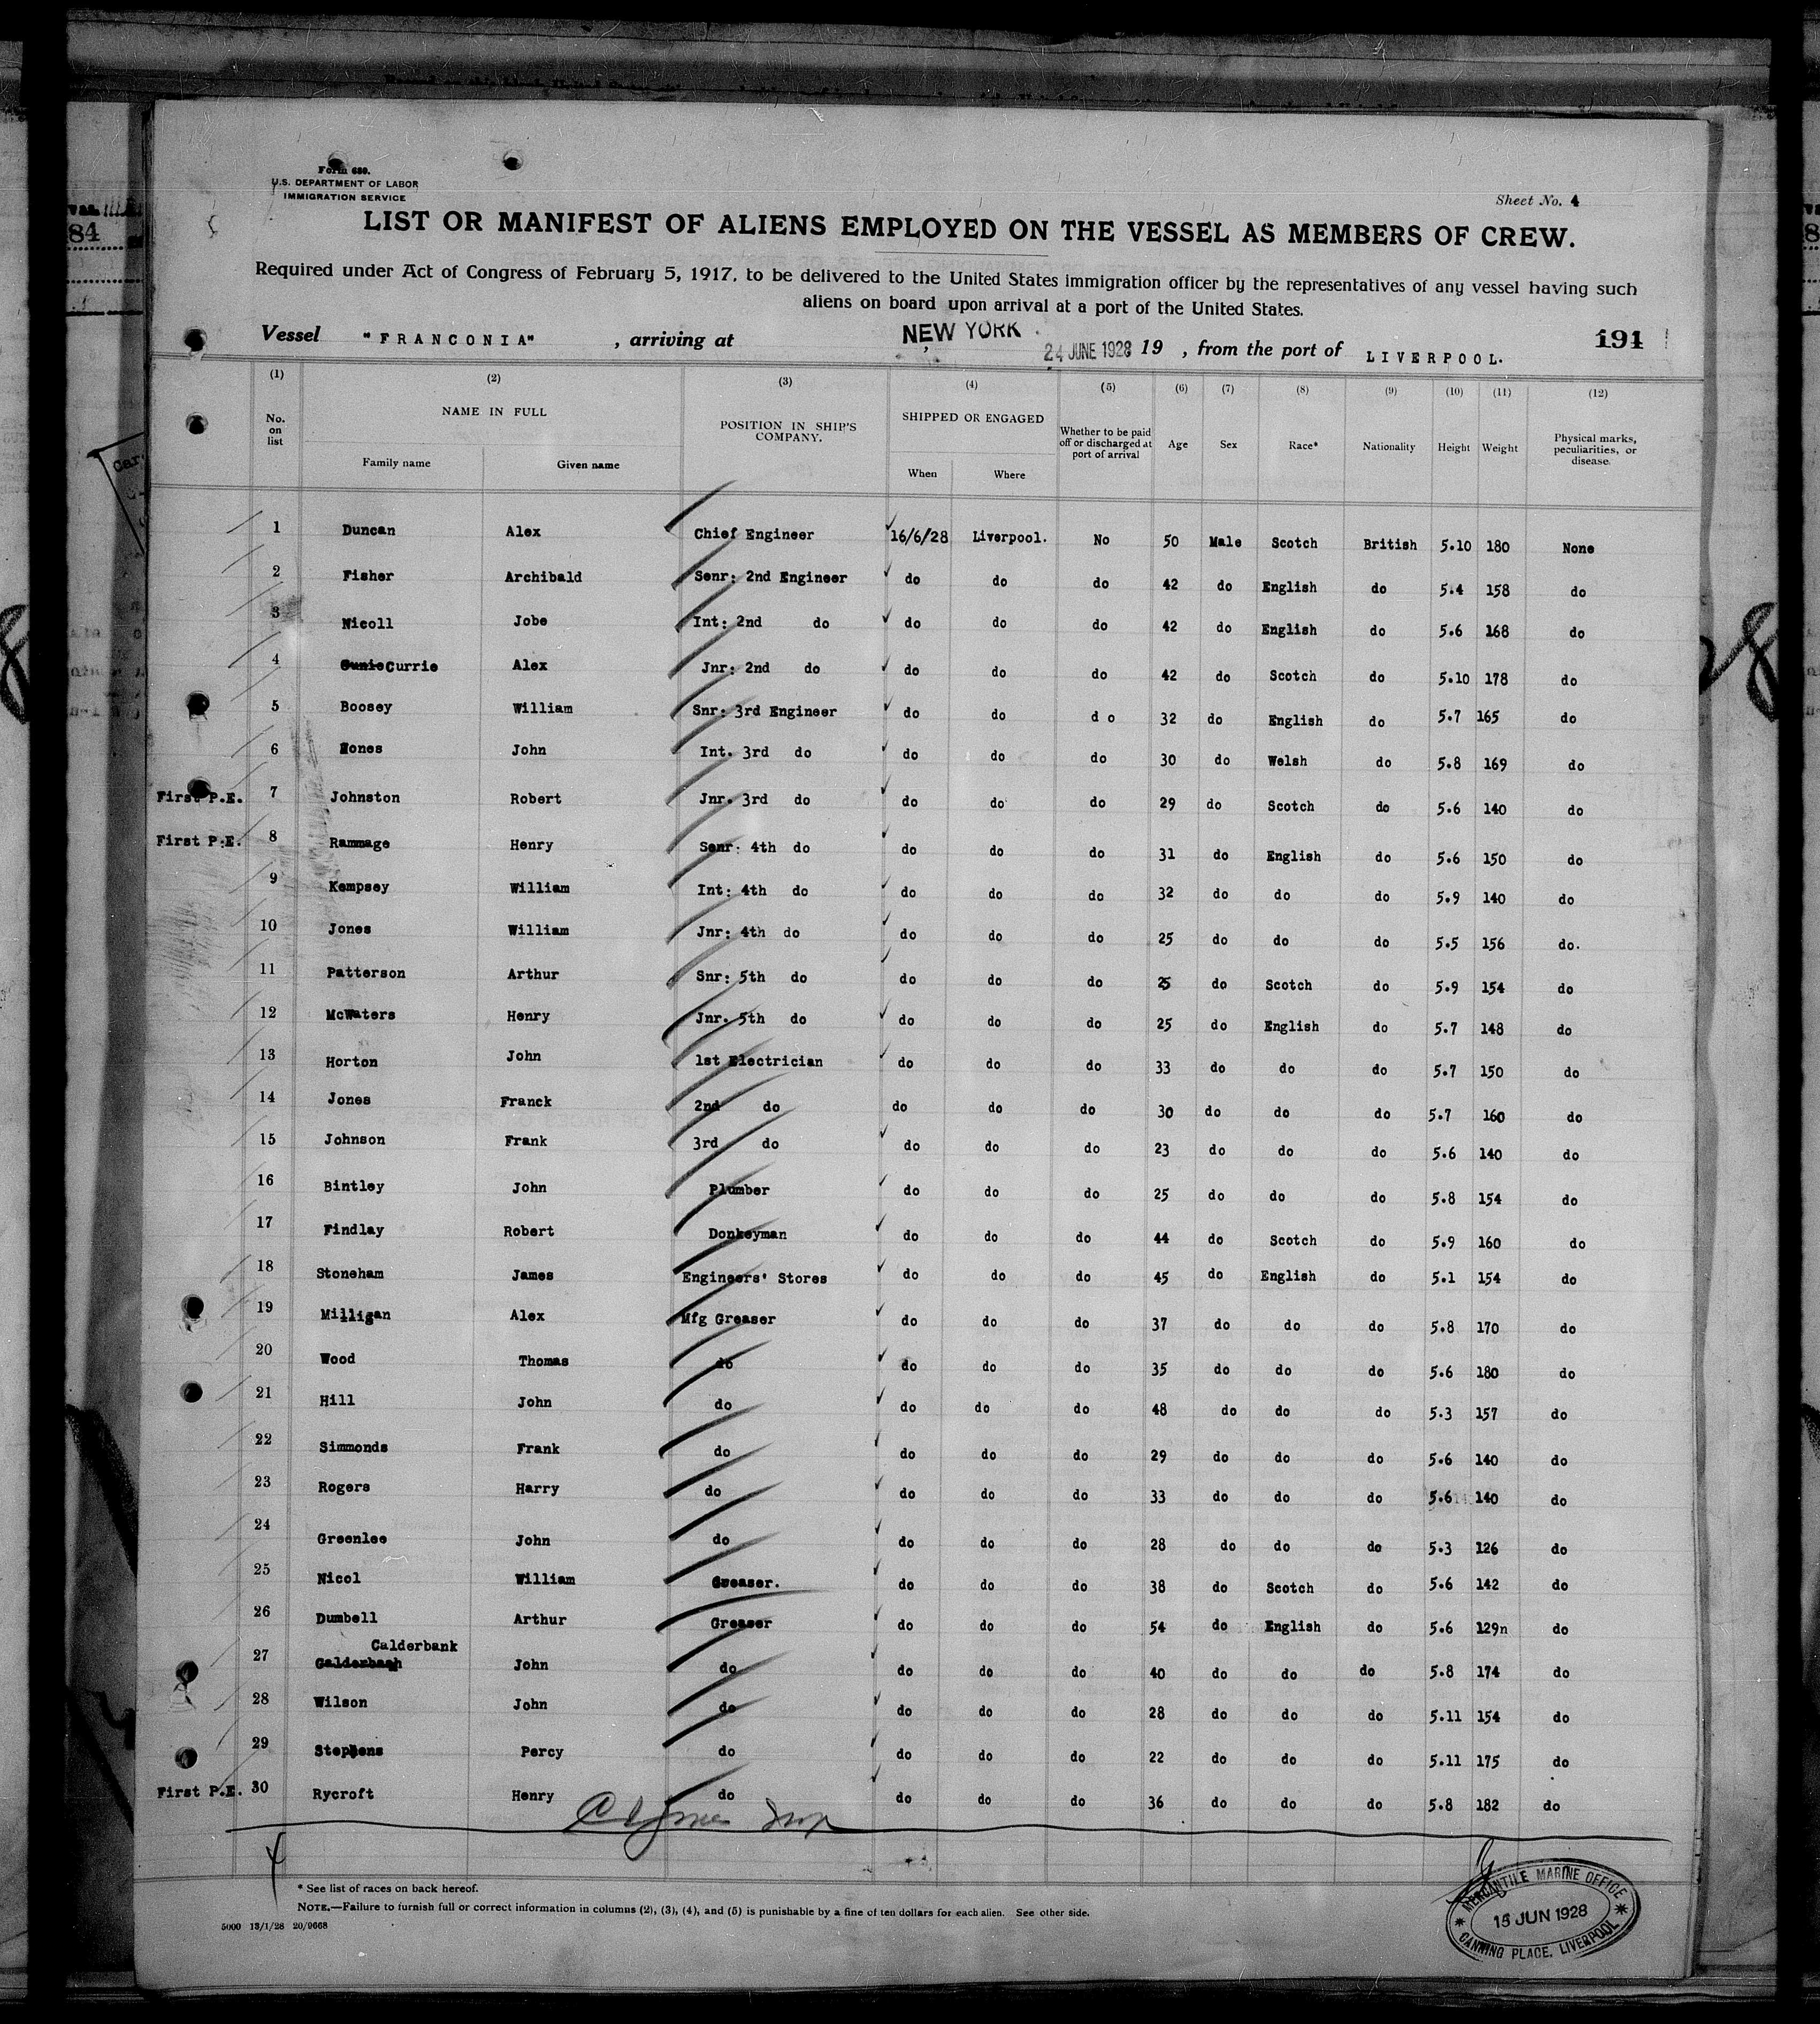 Form 680.
U.S. DEPARTMENT OF LABOR
IMMIGRATION SERVICE
Sheet No. 4
LIST OR MANIFEST OF ALIENS EMPLOYED ON THE VESSEL AS MEMBERS OF CREW.
Required under Act of Congress of February 5, 1917, to be delivered to the United States immigration officer by the representatives of any vessel having such
aliens on board upon arrival at a port of the United States.
Vessel "FRANCONIA" , arriving at NEW YORK 24 JUNE 1928 19 , from the port of LIVERPOOL. 191
(1) (2) (3) (4) (5) (6) (7) (8) (9) (10) (11) (12)
No. on list NAME IN FULL Family name Given name POSITION IN SHIP'S COMPANY. SHIPPED OR ENGAGED When Where Whether to be paid off or discharged at port of arrival Age Sex Race* Nationality Height Weight Physical marks, peculiarities, or disease.
1 Duncan Alex Chief Engineer 16/6/28 Liverpool. No 50 Male Scotch British 5.10 180 None
2 Fisher Archibald Senr: 2nd Engineer do do do 42 do English do 5.4 158 do
3 Nicoll Jobe Int: 2nd do do do do 42 do English do 5.6 168 do
4 Currie Alex Jnr: 2nd do do do do 42 do Scotch do 5.10 178 do
5 Boosey William Snr: 3rd Engineer do do d o 32 do English do 5.7 165 do
6 Jones John Int. 3rd do do do do 30 do Welsh do 5.8 169 do
First P.E. 7 Johnston Robert Jnr. 3rd do do do do 29 do Scotch do 5.6 140 do
First P.E. 8 Rammage Henry Senr: 4th do do do do 31 do English do 5.6 150 do
9 Kempsey William Int: 4th do do do do 32 do do do 5.9 140 do
10 Jones William Jnr: 4th do do do do 25 do do do 5.5 156 do.
11 Patterson Arthur Snr: 5th do do do do 25 do Scotch do 5.9 154 do
12 McWaters Henry Jnr. 5th do do do do 25 do English do 5.7 148 do
13 Horton John 1st Electrician do do do 33 do do do 5.7 150 do
14 Jones Franck 2nd do do do do 30 do do do 5.7 160 do
15 Johnson Frank 3rd do do do do 23 do do do 5.6 140 do
16 Bintley John Plumber do do do 25 do do do 5.8 154 do
17 Findlay Robert Donkeyman do do do 44 do Scotch do 5.9 160 do
18 Stoneham James Engineers' Stores do do do 45 do English do 5.1 154 do
19 Milligan Alex Mfg Greaser do do do 37 do do do 5.8 170 do
20 Wood Thomas do do do do 35 do do do 5.6 180 do
21 Hill John do do do do 48 do do do 5.3 157 do
22 Simmonds Frank do do do do 29 do do do 5.6 140 do
23 Rogers Harry do do do do 33 do do do 5.6 140 do
24 Greenlee John do do do do 28 do do do 5.3 126 do
25 Nicol William Greaser. do do do 38 do Scotch do 5.6 142 do
26 Dumbell Arthur Greaser do do do 54 do English do 5.6 129n do
Calderbank
27 Galderbach John do do do do 40 do do do 5.8 174 do
28 Wilson John do do do do 28 do do do 5.11 154 do
29 Stephens Percy do do do do 22 do do do 5.11 175 do
First P.E. 30 Rycroft Henry do do do do 36 do do do 5.8 182 do
* See list of races on back hereof.
NOTE.—Failure to furnish full or correct information in columns (2), (3), (4), and (5) is punishable by a fine of ten dollars for each alien. See other side.
5000 13/1/28 20/0668
MERCANTILE MARINE OFFICE
15 JUN 1928
CANNING PLACE, LIVERPOOL